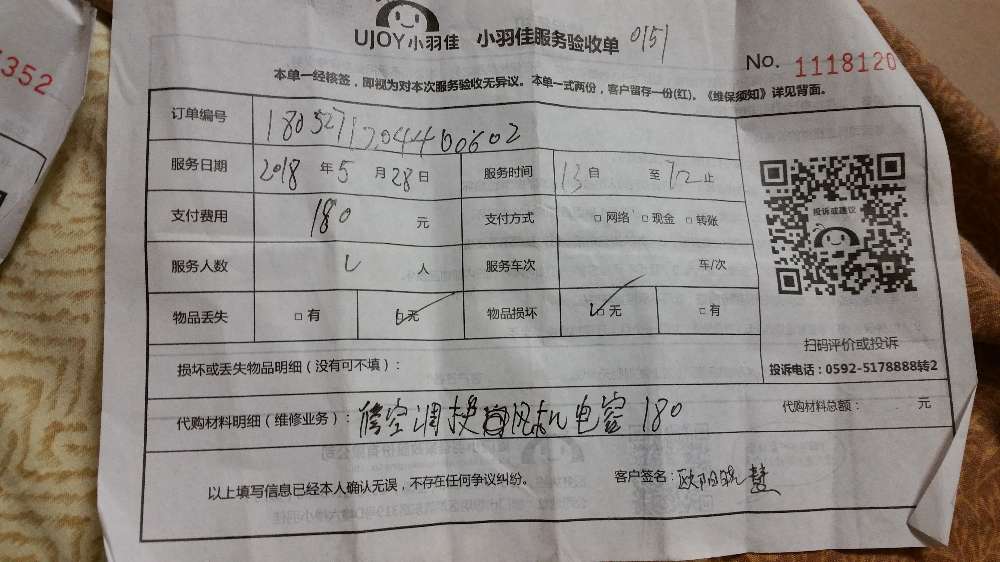 352
UJOY小羽佳 小羽佳服务验收单 0151
No. 1118120
本单一经核签，即视为对本次服务验收无异议。本单一式两份，客户留存一份(红)。《维保须知》详见背面。
订单编号 18052717204400602
服务日期 2018 年 5 月 28 日 服务时间 13 自 至 17 止
支付费用 180 元 支付方式 □ 网络 □ 现金 □ 转账
服务人数 人 服务车次 车/次
物品丢失 □ 有 □ 无 物品损坏 □ 无 □ 有
投诉或建议
扫码评价或投诉
投诉电话：0592-5178888转2
损坏或丢失物品明细（没有可不填）：
代购材料明细（维修业务）：修空调换风机电容 180 代购材料总额： 元
以上填写信息已经本人确认无误，不存在任何争议纠纷。 客户签名：欧阳晓慧